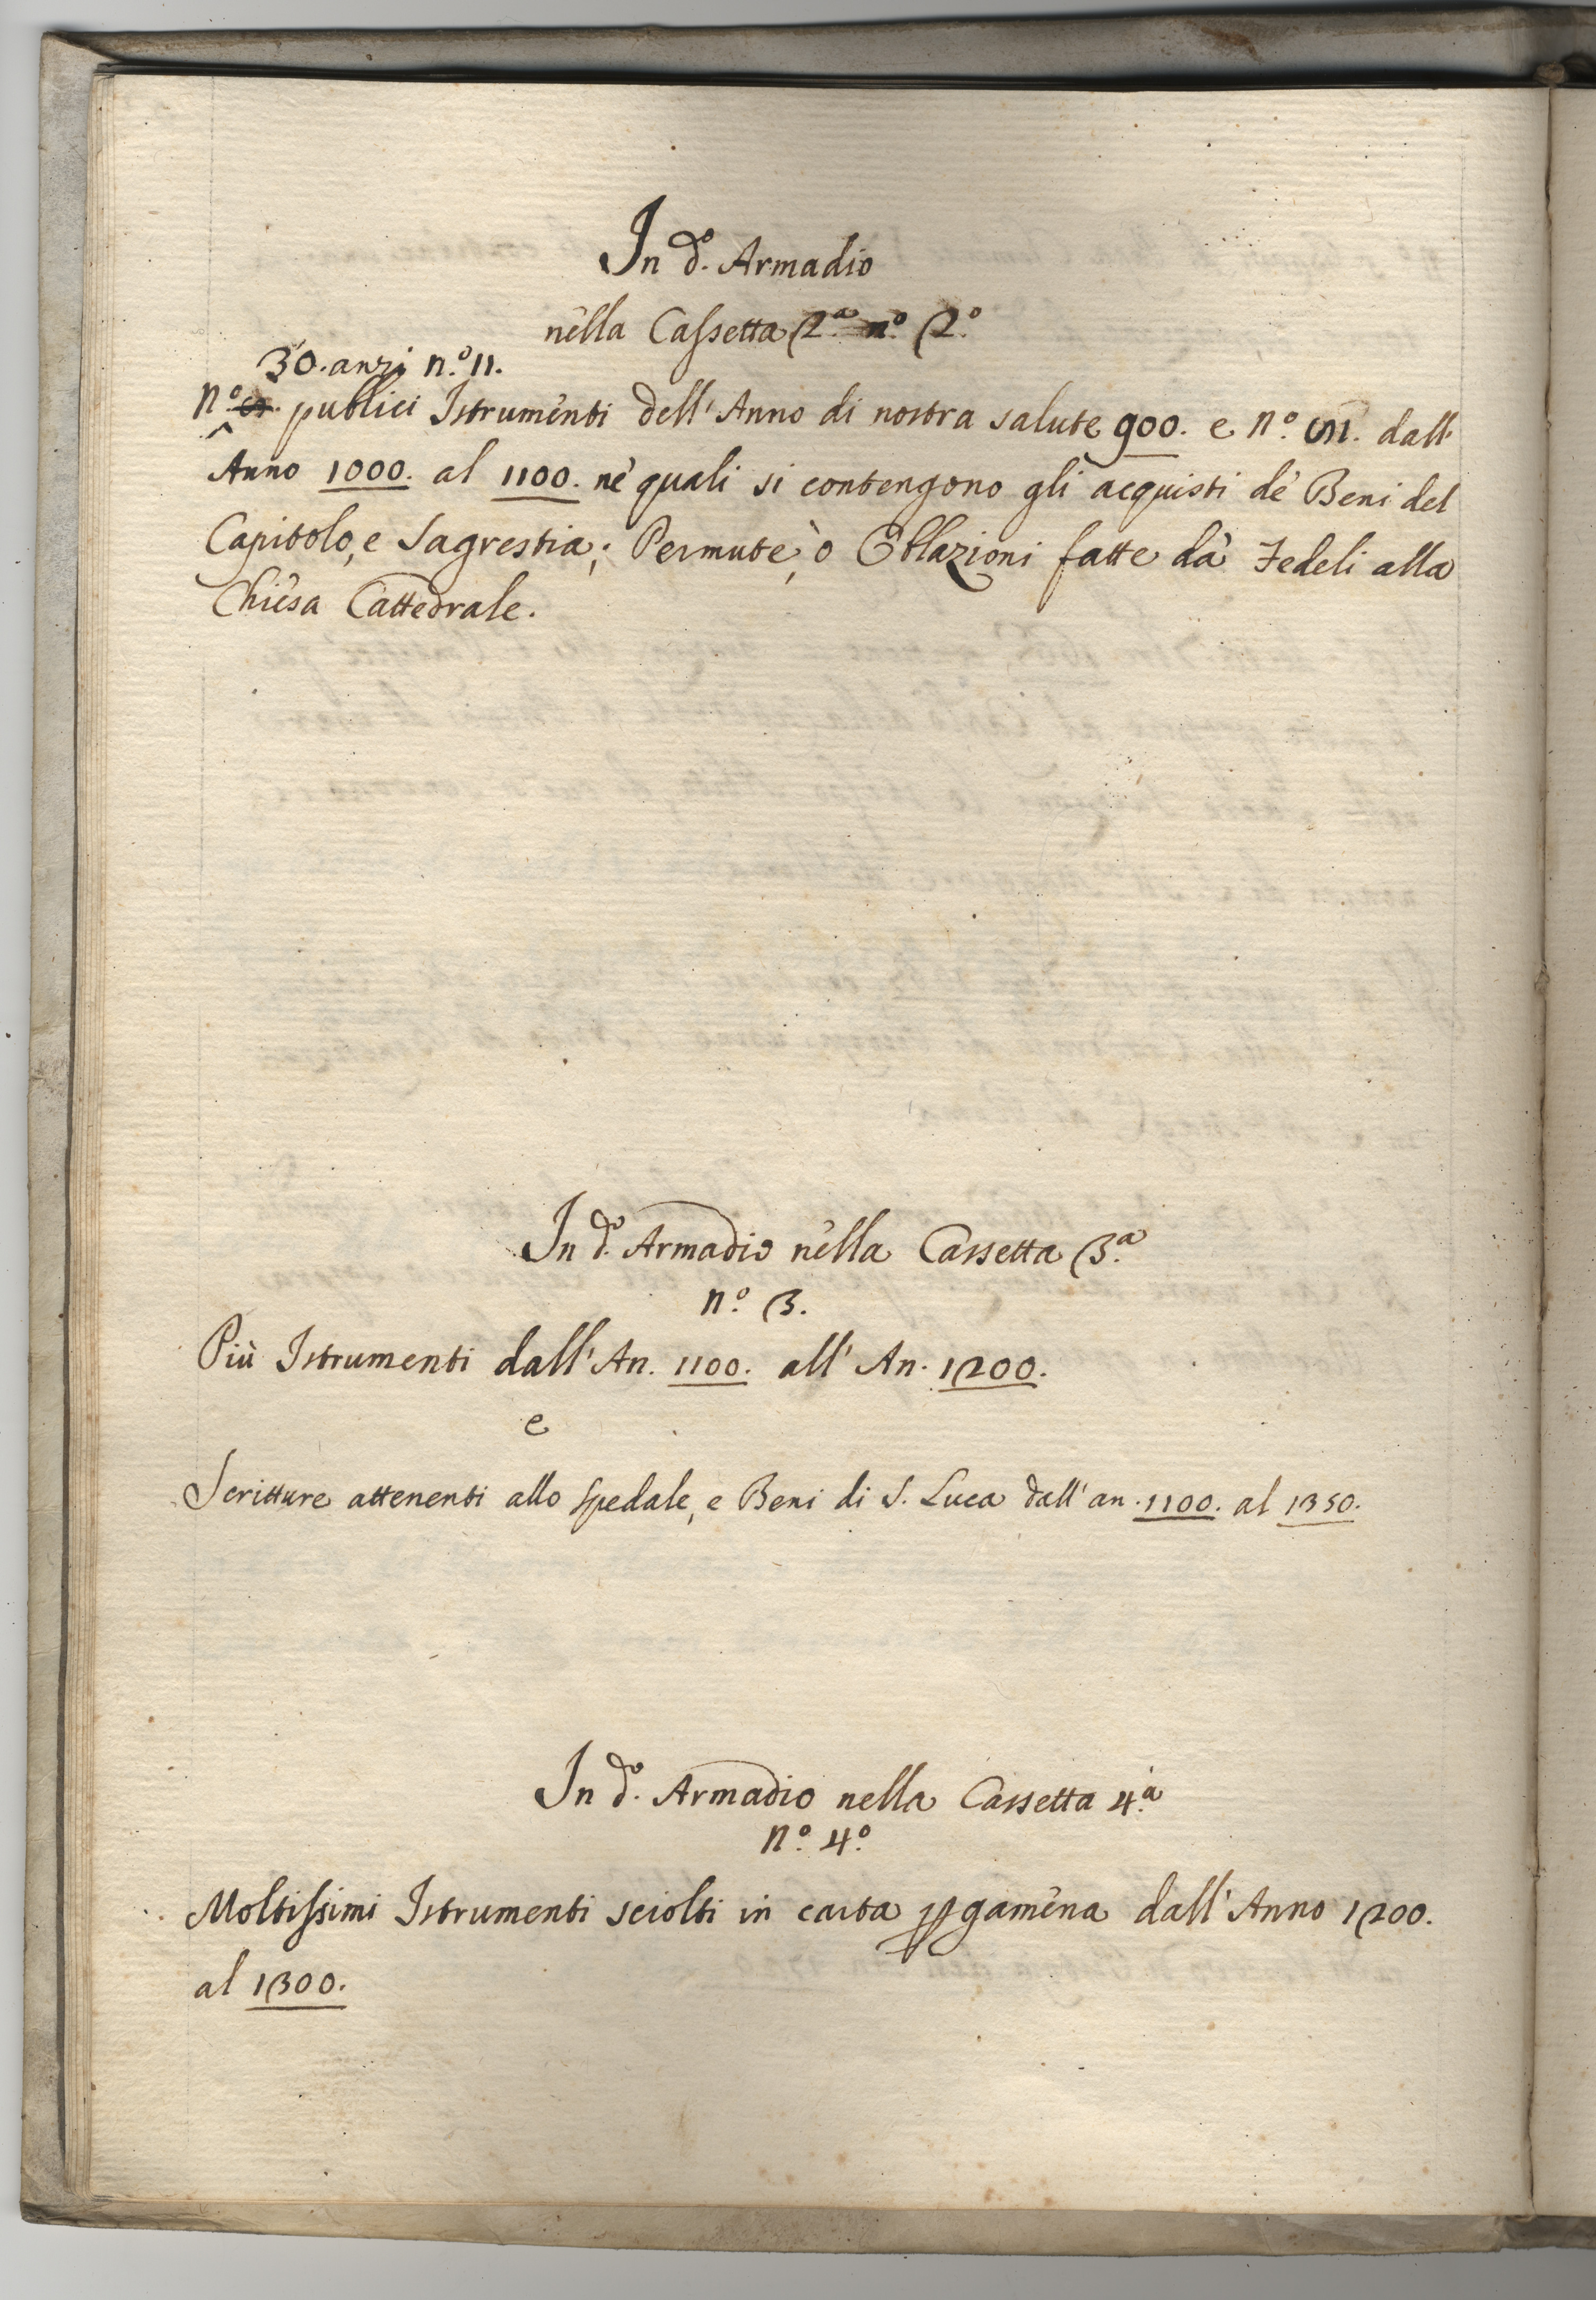 In d.º Armadio
nella Cassetta 2.ª n.º 2.º
30. anzi n.º 11.
n.º publici Istrumenti dell'Anno di nostra salute 900. e n.º dall'
Anno 1000. al 1100. nè quali si contengono gli acquisti dè Beni del
Capitolo, e Sagrestia; Permute, ò Oblazioni fatte dà Fedeli alla
Chiesa Cattedrale.
In d.º Armadio nella Cassetta 3.ª
n.º 3.
Più Istrumenti dall'An. 1100. all'An. 1200.
e
Scritture attenenti allo Spedale, e Beni di S. Luca dall'an. 1100. al 1350.
In d.º Armadio nella Cassetta 4.ª
n.º 4.º
Moltissimi Istrumenti sciolti in carta pgamena dall'Anno 1200.
al 1300.